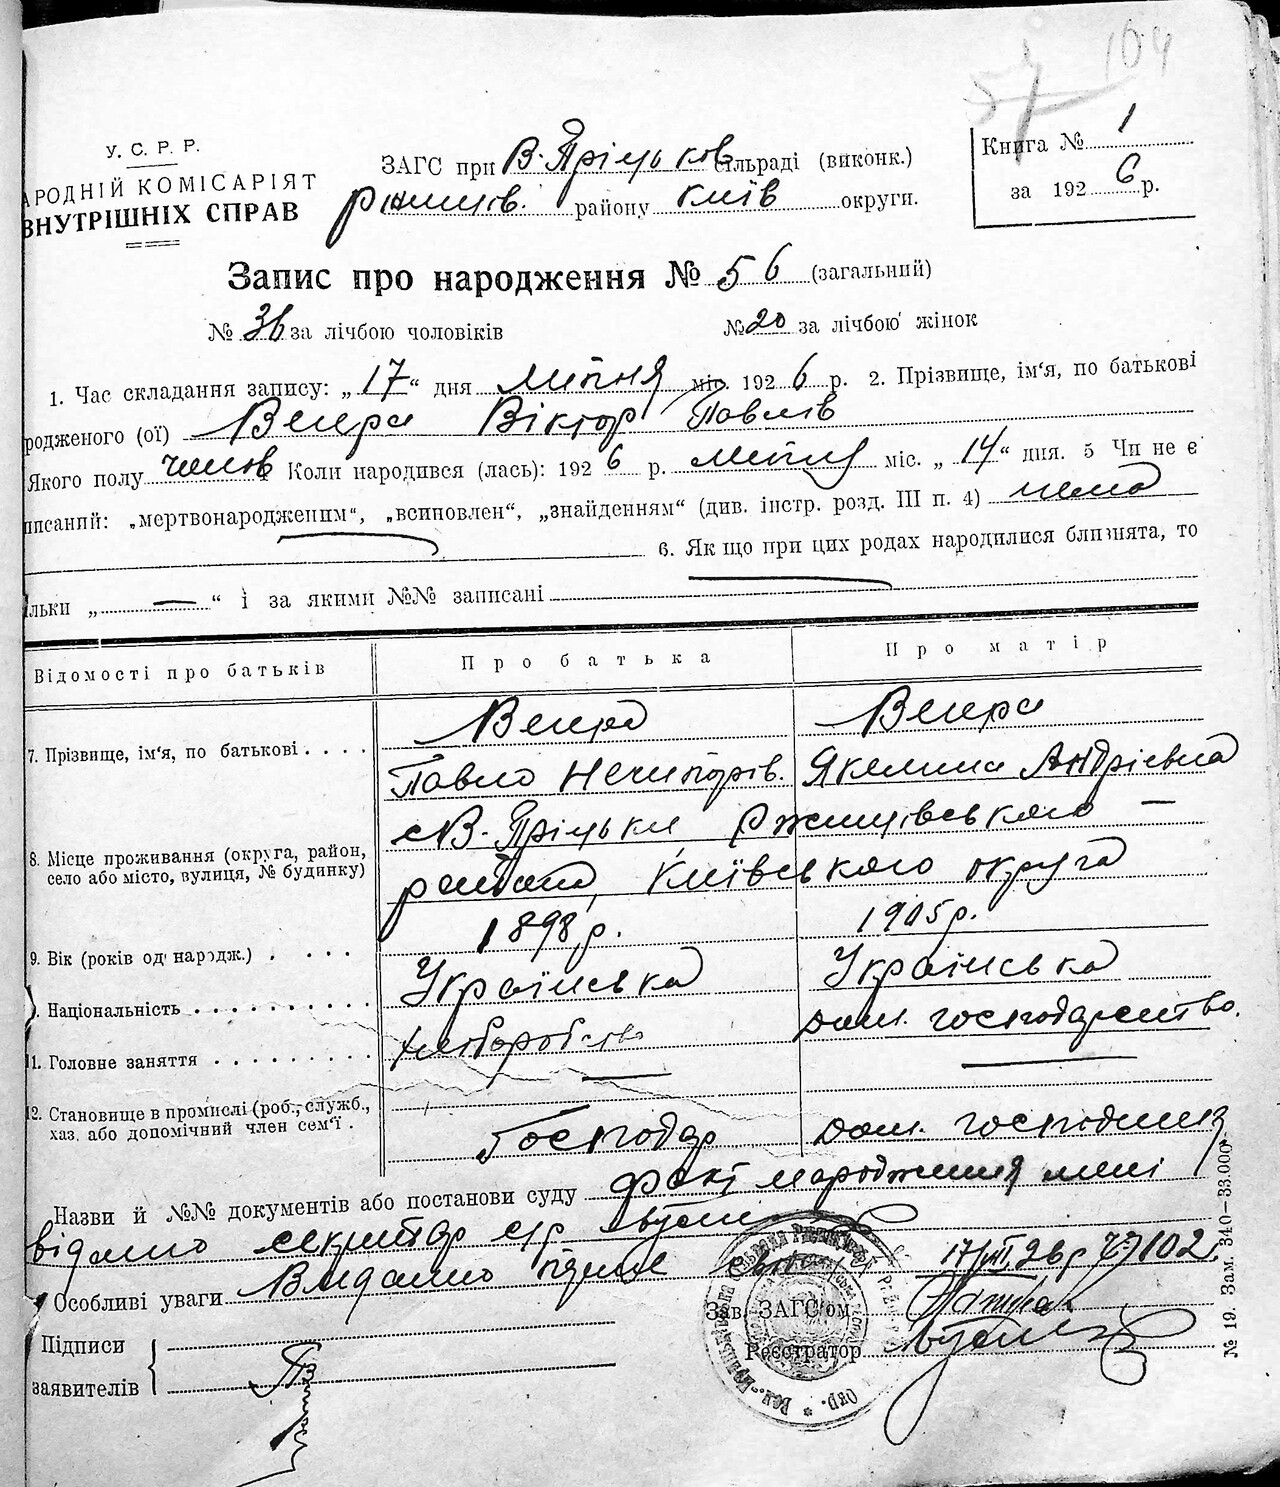 57 104
У. С. Р. Р.
АРОДНІЙ КОМІСАРІЯТ
ВНУТРІШНІХ СПРАВ
ЗАГС при В. Пріцьков сільраді (виконк.)
району Київ округи.
Книга № 1
за 1926 р.
Запис про народження № 56 (загальний)
№ 36 за лічбою чоловіків № 20 за лічбою жінок
1. Час складання запису: „17“ дня липня міс. 1926 р. 2. Прізвище, ім‘я, по батькові
родженого (ої) Вегера Віктор Павлів
Якого полу чолов Коли народився (лась): 1926 р. липня міс. „14“ дня. 5 Чи не є
писаний: „мертвонародженим“, „всиновлен“, „знайденням“ (див. інстр. розд. III п. 4) нема
6. Як що при цих родах народилися близнята, то
ільки „ — “ і за якими №№ записані
Відомості про батьків Про батька Про матір
7. Прізвище, ім‘я, по батькові . . . . Вегера Вегера
Павло Нечипорів. Якелина Андріївна
8. Місце проживання (округа, район, село або місто, вулиця, № будинку) с В-Пріцьки Ржищівського —
района, Київського округа
9. Вік (років од народж.) . . . . 1898 р. 1905 р.
. Національність . . . . . . . . Українська Українська
11. Головне заняття . . . . . . . . хліборобство дом. господарство.
12. Становище в промислі (роб., служб., хаз. або допомічний член сем‘ї . Господар дом. господиня
Назви й №№ документів або постанови суду факт народження мені
відомо секретар с/р
Особливі уваги Видано 17/VII 26 р 77102
Підписи
заявителів
Зав. ЗАГС‘ом
Реєстратор
№ 19. Зам. 340–33.000